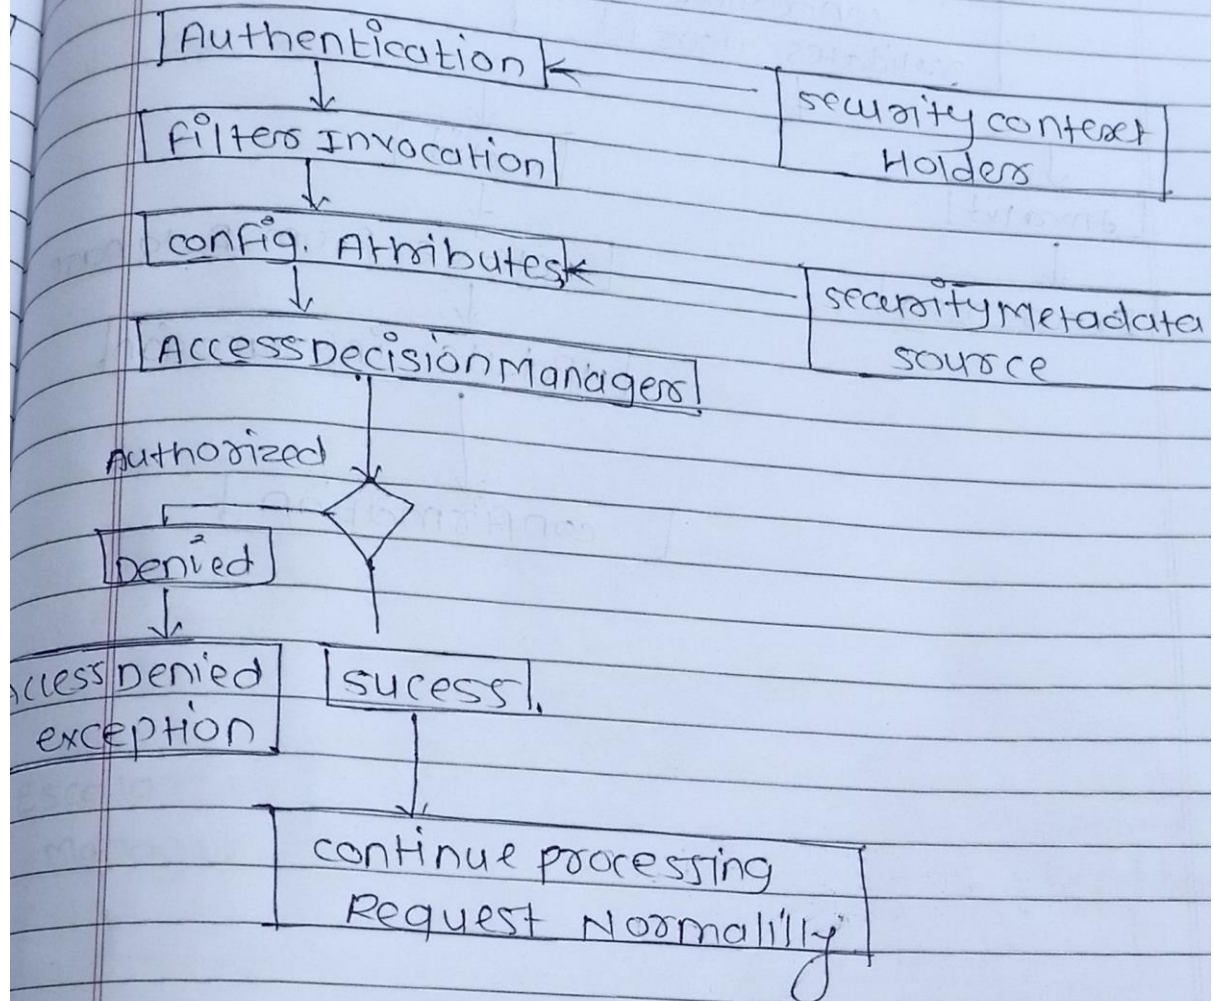 Authentication
security context
Holder
Filter Invocation
config. Attributes
security Metadata
source
Access Decision Manager
Authorized
Denied
Access Denied
exception
sucess
continue processing
Request Normalilly